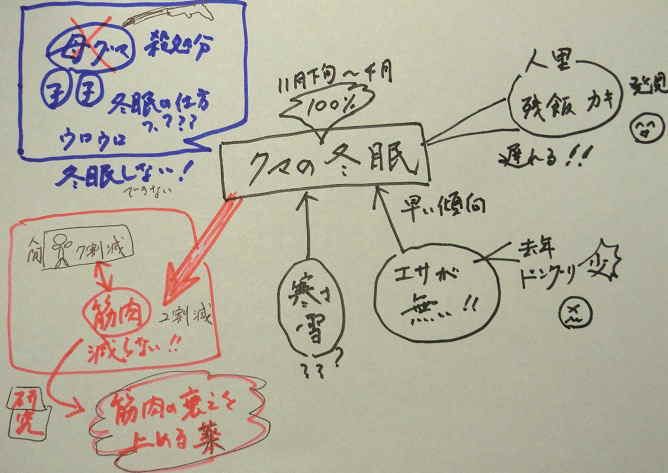 母グマ 殺処分
子 子
冬眠の仕方
って???
ウロウロ
冬眠しない!
できない
11月下旬～4月
100%
クマの冬眠
人里
残飯 カキ
発見
遅れる!!
早い傾向
エサが
無い!!
去年
ドングリ 少
寒さ
雪
???
人間 7割減
筋肉 2割減
減らない!!
研究
筋肉の衰えを
止める薬